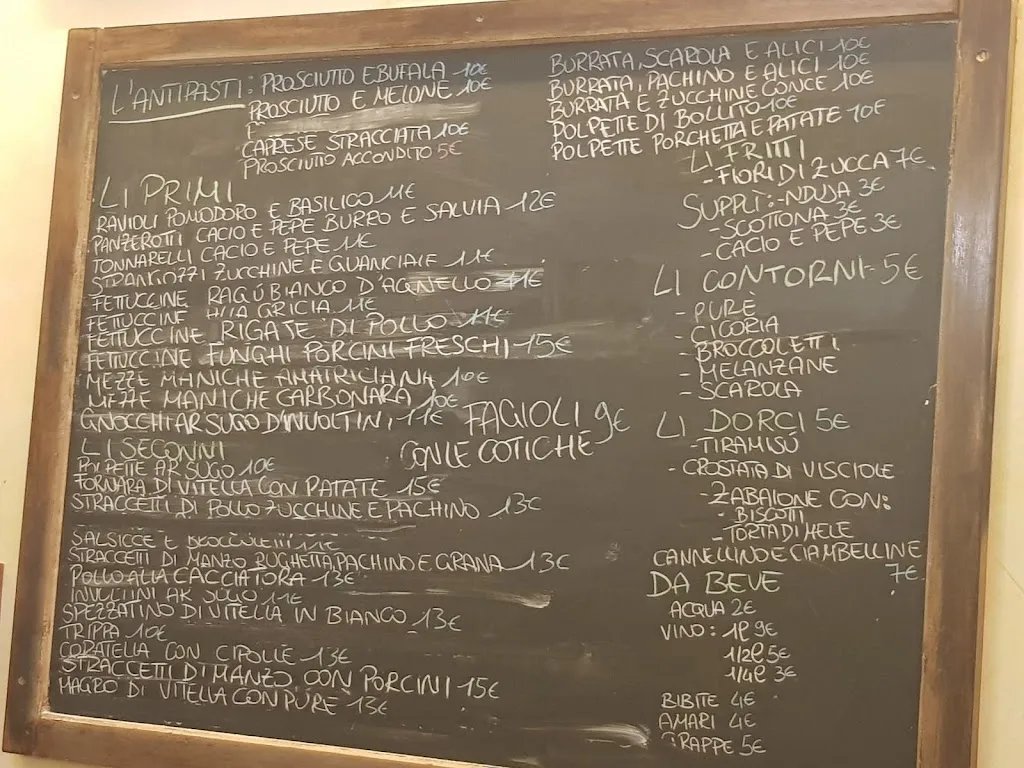 L'ANTIPASTI: PROSCIUTTO E BUFALA 10€
PROSCIUTTO E MELONE 10€
E
CAPRESE STRACCIATA 10€
PROSCIUTTO ACCONDITO 5€
BURRATA, SCAROLA E ALICI 10€
BURRATA, PACHINO E ALICI 10€
BURRATA E ZUCCHINE CONCE 10€
POLPETTE DI BOLLITO 10€
POLPETTE PORCHETTA E PATATE 10€
LI PRIMI
RAVIOLI POMODORO E BASILICO 11€
PANZEROTTI CACIO E PEPE BURRO E SALVIA 12€
TONNARELLI CACIO E PEPE 11€
STRANGOZZI ZUCCHINE E GUANCIALE 11€
FETTUCCINE RAGÚ BIANCO D'AGNELLO 11€
FETTUCCINE ALLA GRICIA 11€
FETTUCCINE RIGATE DI POLLO 11€
FETTUCCINE FUNGHI PORCINI FRESCHI 15€
MEZZE MANICHE AMATRICIANA 10€
MEZZE MANICHE CARBONARA 10€
GNOCCHI AR SUGO D'INVOLTINI 11€
FAGIOLI 9€
CON LE COTICHE
LI SECONNI
POLPETTE AR SUGO 10€
FORNARA DI VITELLA CON PATATE 15€
STRACCETTI DI POLLO ZUCCHINE E PACHINO 13€
SALSICCE E BROCCOLETTI 11€
STRACCETTI DI MANZO RUGHETTA, PACHINO E GRANA 13€
POLLO ALLA CACCIATORA 13€
INVOLTINI AR SUGO 11€
SPEZZATINO DI VITELLA IN BIANCO 13€
TRIPPA 10€
CORATELLA CON CIPOLLE 13€
STRACCETTI DI MANZO CON PORCINI 15€
MAGRO DI VITELLA CON PURÈ 13€
LI FRITTI
- FIORI DI ZUCCA 7€
SUPPLÌ: - NDUJA 3€
- SCOTTONA 3€
- CACIO E PEPE 3€
LI CONTORNI - 5€
- PURÈ
- CICORIA
- BROCCOLETTI
- MELANZANE
- SCAROLA
LI DORCI 5€
- TIRAMISÚ
- CROSTATA DI VISCIOLE
- ZABAIONE CON:
- BISCOTTI
- TORTA DI MELE
CANNELLINO E CIAMBELLINE 7€
DA BEVE
ACQUA 2€
VINO: 1l 9€
1/2l 5€
1/4l 3€
BIBITE 4€
AMARI 4€
GRAPPE 5€